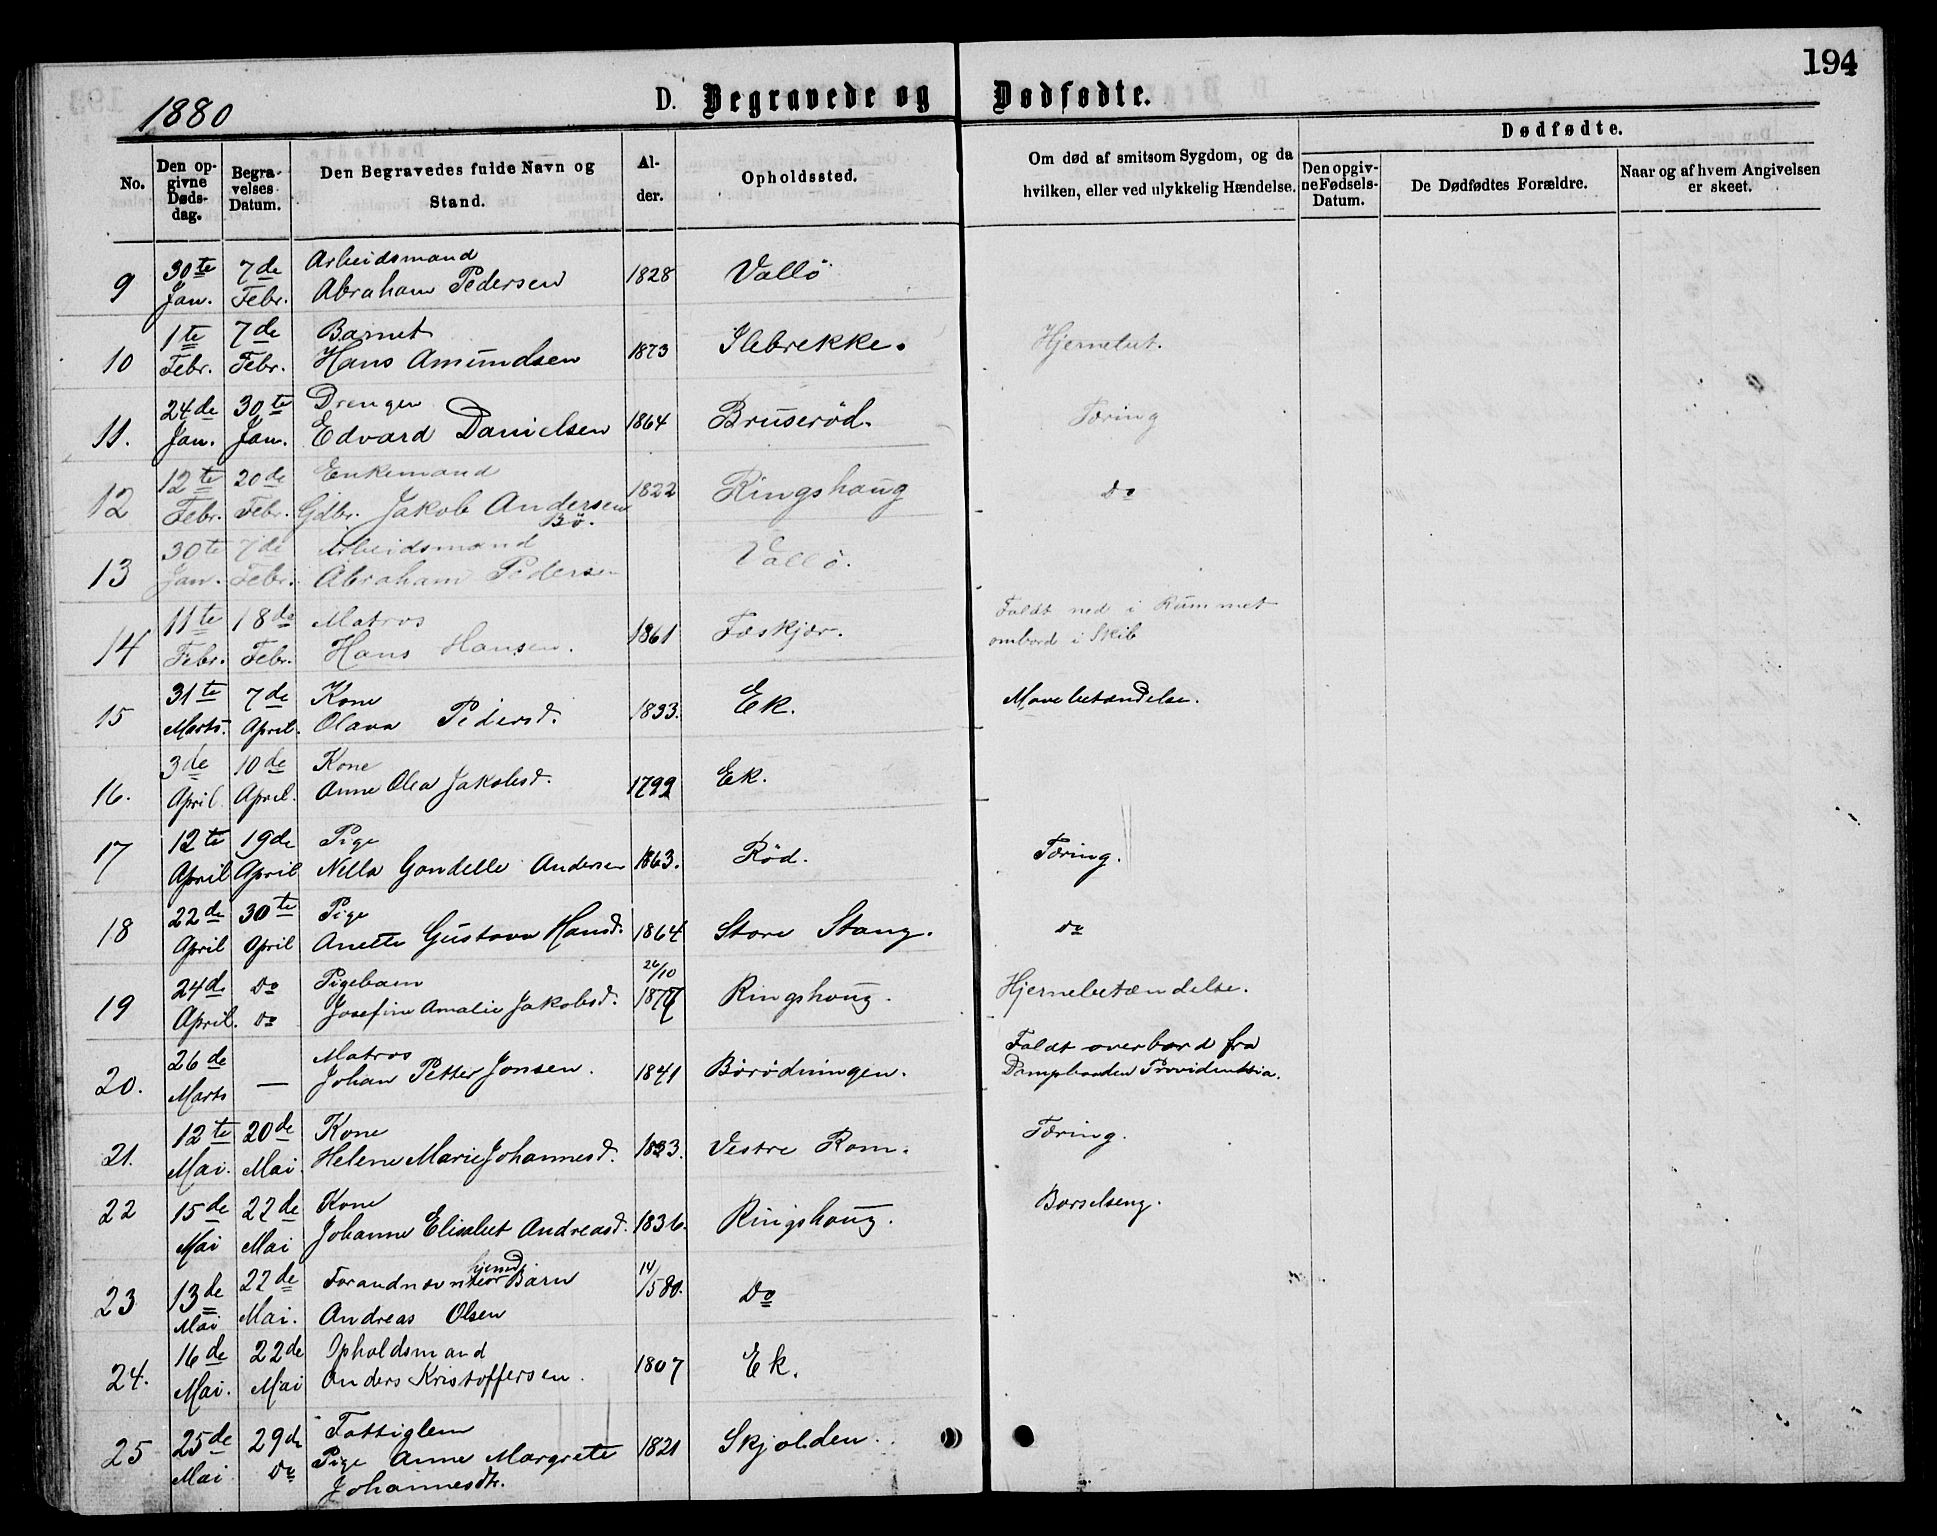 194
1880
D. Begravede og Dødfødte.
No.
Den opgivne Dødsdag.
Begravelses Datum.
Den Begravedes fulde Navn og Stand.
Alder.
Opholdssted.
Om død af smitsom Sygdom, og da hvilken, eller ved ulykkelig Hændelse.
Dødfødte.
Den opgivne Fødsels-Datum.
De Dødfødtes Forældre.
Naar og af hvem Angivelsen er skeet.
9 30te Jan. 7de Febr. Arbeidsmand Abraham Pedersen 1828 Vallö
10 1te Febr. 7de Febr. Barnet Hans Amundsen 1873 Ilebrekke.
11. 24de Jan. 30te Jan. Drengen Edvard Danielsen 1864 Bruseröd. Tæring
12 12te Febr. 20de Febr. Enkemand Gdbr. Jakob Andersen Bö. 1822 Ringshaug Do
13 30te Jan. 7de Febr. Arbeidsmand Abraham Pedersen Vallö.
14 11te Febr. 18de Febr. Matros Hans Hansen. 1861 Feskjær. Faldt ned i Rummet ombord i Skib
15 31te Marts. 7de April. Kone Olava Pedersd. 1833. Ek. Mavebetændelse.
16. 3de April 10de April. Kone Anne Olea Jakobsd. 1792 Ek.
17 12te April 19de April Pige Nella Gondelle Andersen 1863. Röd. Tæring.
18 22de April 30te April Pige Anette Gustava Hansd. 1864 Store Stang. do
19 24de April. Do do Pigebarn Josefine Amalie Jakobsd. 26/10 1877 Ringshoug. Hjernebetændelse.
20. 26de Marts — Matros Johan Petter Jonsen. 1841 Börödningen. Faldt overbord fra Dampbaaden Providentsia.
21. 12te Mai. 20de Mai. Kone Helene Marie Johannesd. 1833. Vestre Rom. Tæring.
22 15de Mai 22de Mai Kone Johanne Elisabet Andreasd. 1836. Ringshoug. Barselseng.
23 13de Mai 22de Mai. Barn Andreas Olsen 14/5 80. Do
24. 16de Mai. 22de Mai Opholdsmand Anders Kristoffersen. 1807 Ek.
25 25de Mai 29de Do Fattiglem Pige Anne Margrete Johannesdtr. 1821 Skjolden.